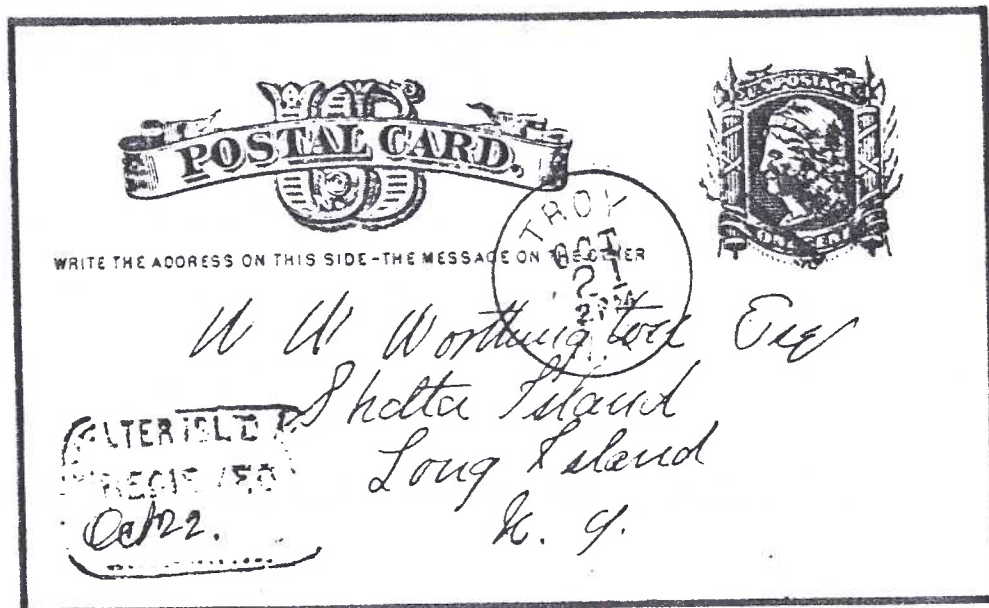 U.S. POSTAGE
POSTAL CARD.
ONE CENT
WRITE THE ADDRESS ON THIS SIDE - THE MESSAGE ON THE OTHER
TROY
OCT
21
W W Worthington Esq
Shelter Island
Long Island
N. Y.
RECEIVED
Oct 22.